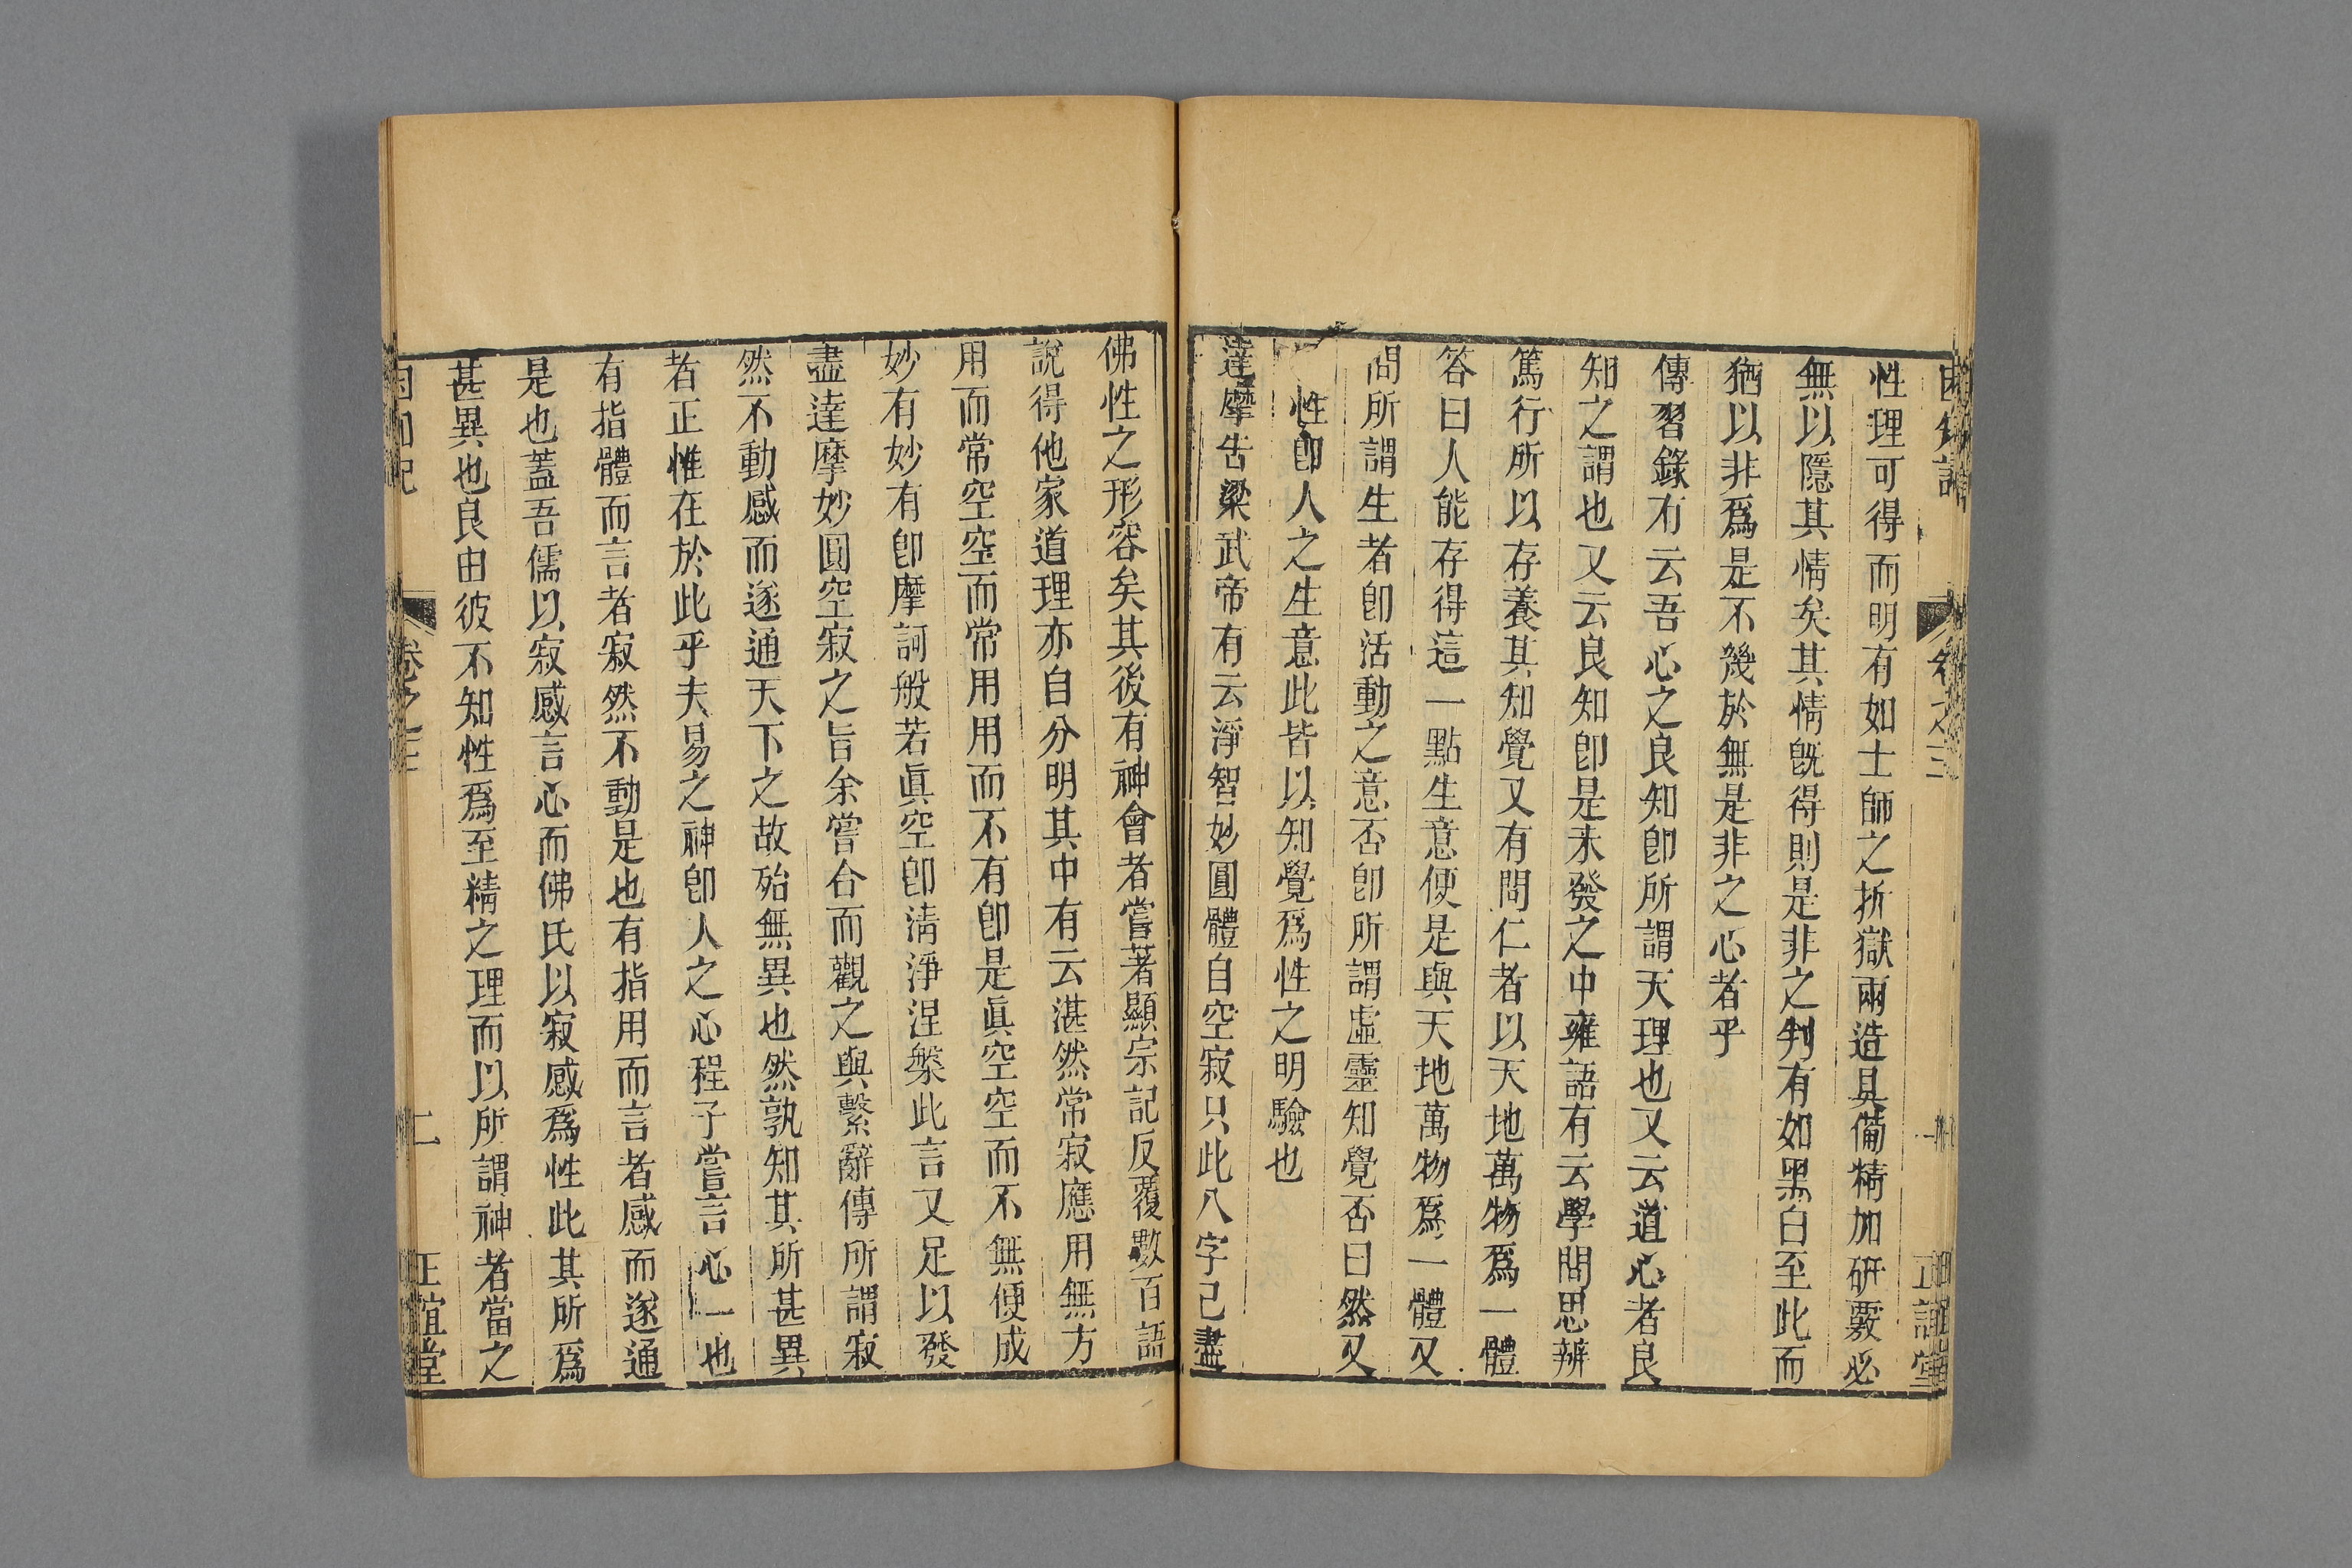 困知記 卷之三 正誼堂
性理可得而明有如士師之折獄兩造具備精加研覈必
無以隱其情矣其情旣得則是非之判有如黑白至此而
猶以非爲是不幾於無是非之心者乎
傳習錄有云吾心之良知卽所謂天理也又云道心者良
知之謂也又云良知卽是未發之中雍語有云學問思辨
篤行所以存養其知覺又有問仁者以天地萬物爲一體
答曰人能存得這一點生意便是與天地萬物爲一體又
問所謂生者卽活動之意否卽所謂虛靈知覺否曰然又
性卽人之生意此皆以知覺爲性之明驗也
達摩告梁武帝有云淨智妙圓體自空寂只此八字已盡
佛性之形容矣其後有神會者嘗著顯宗記反覆數百語
說得他家道理亦自分明其中有云湛然常寂應用無方
用而常空空而常用用而不有卽是眞空空而不無便成
妙有妙有卽摩訶般若眞空卽淸淨涅槃此言又足以發
盡達摩妙圓空寂之旨余嘗合而觀之與繫辭傳所謂寂
然不動感而遂通天下之故殆無異也然孰知其所甚異
者正惟在於此乎夫易之神卽人之心程子嘗言心一也
有指體而言者寂然不動是也有指用而言者感而遂通
是也蓋吾儒以寂感言心而佛氏以寂感爲性此其所爲
甚異也良由彼不知性爲至精之理而以所謂神者當之
困知記 卷之三 二 正誼堂